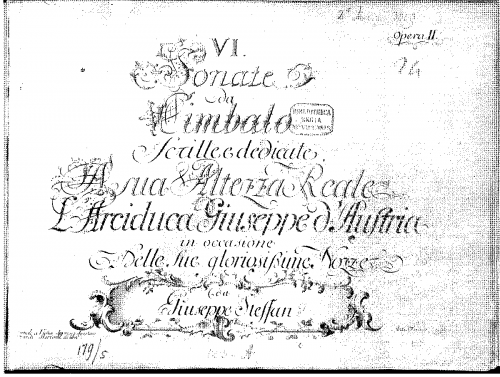 Opera II.
VI.
Sonate
da
Cimbalo
BIBLIOTHECA
REGIA
Scritte, e dedicate.
A sua Altezza Reale
L'Arciduca Giuseppe d'Austria
in occasione
Delle sue gloriosissime Nozze
da
Giuseppe Steffan
179/5